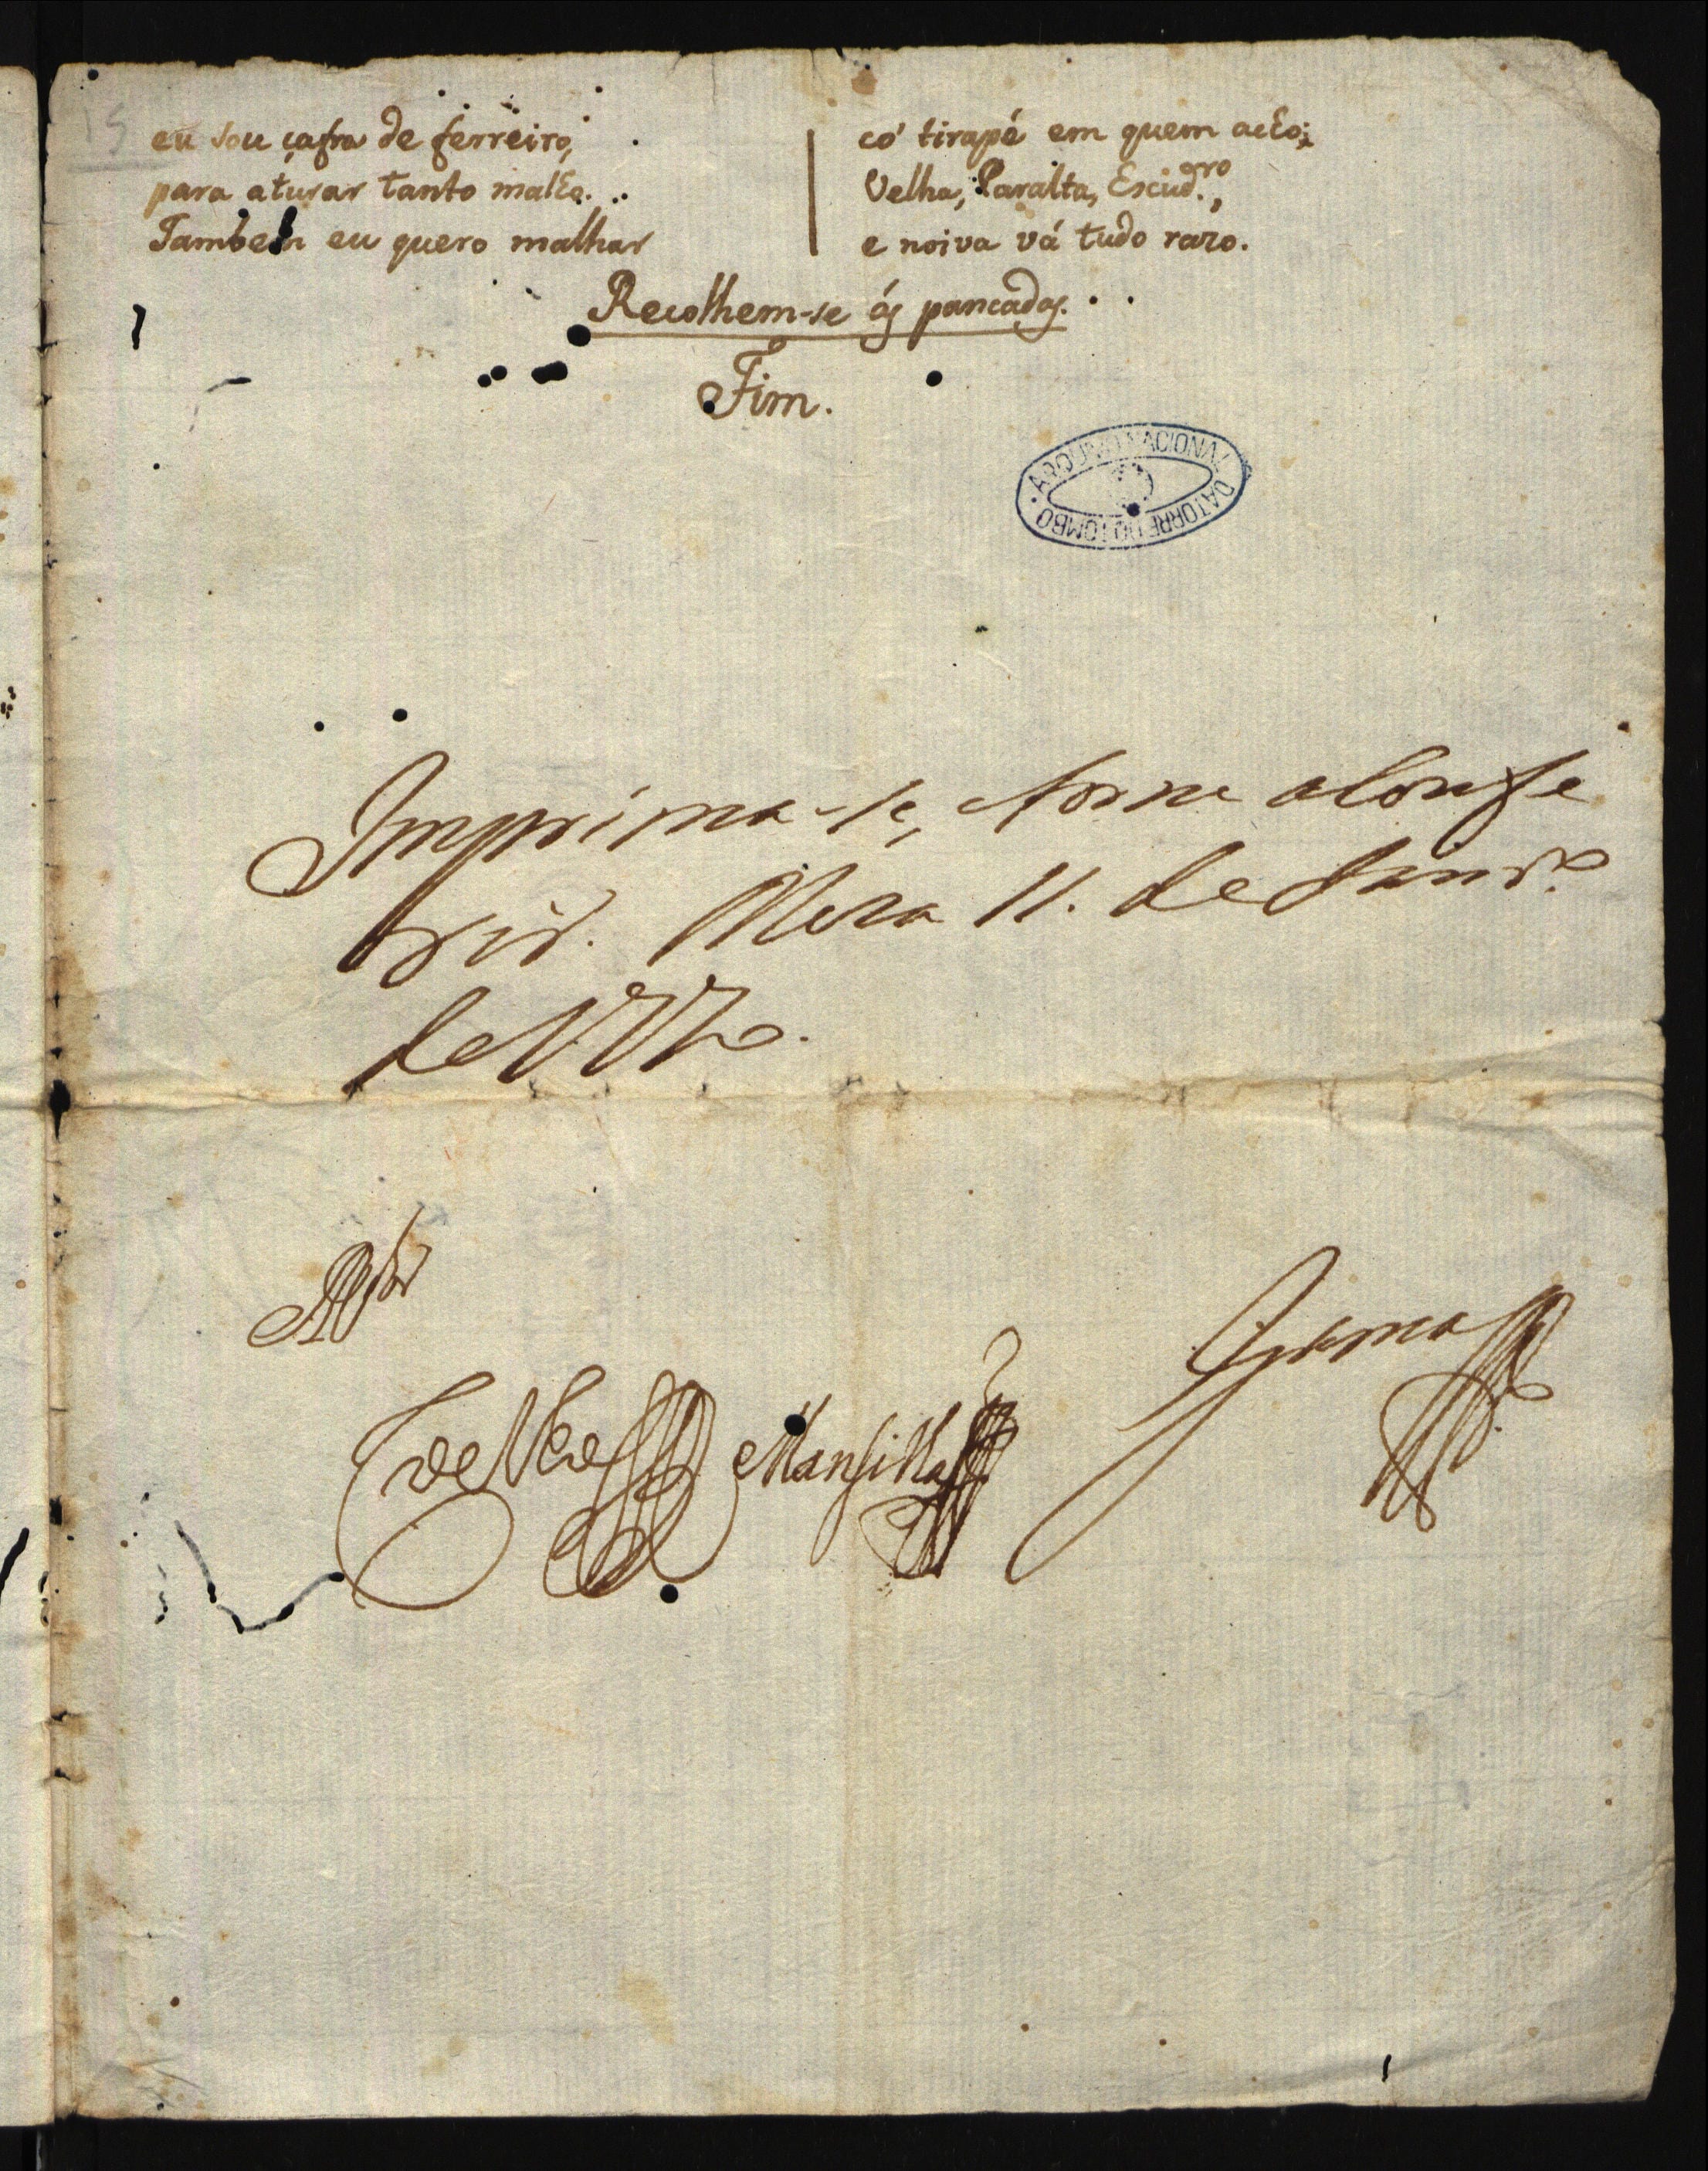 15
eu sou çafra de ferreiro,
para aturar tanto malho...
Tambem eu quero malhar
có tirapé em quem acho;
Velha, Paralta, Escud.ro,
e noiva vá tudo razo.
Recolhem-se ás pancadas.
Fim.
ARQUIVO NACIONAL DA TORRE DO TOMBO
Imprima-se, e torne a Confe
rir. Meza 11. de Janr.o
de 177
Mansilha
Gama